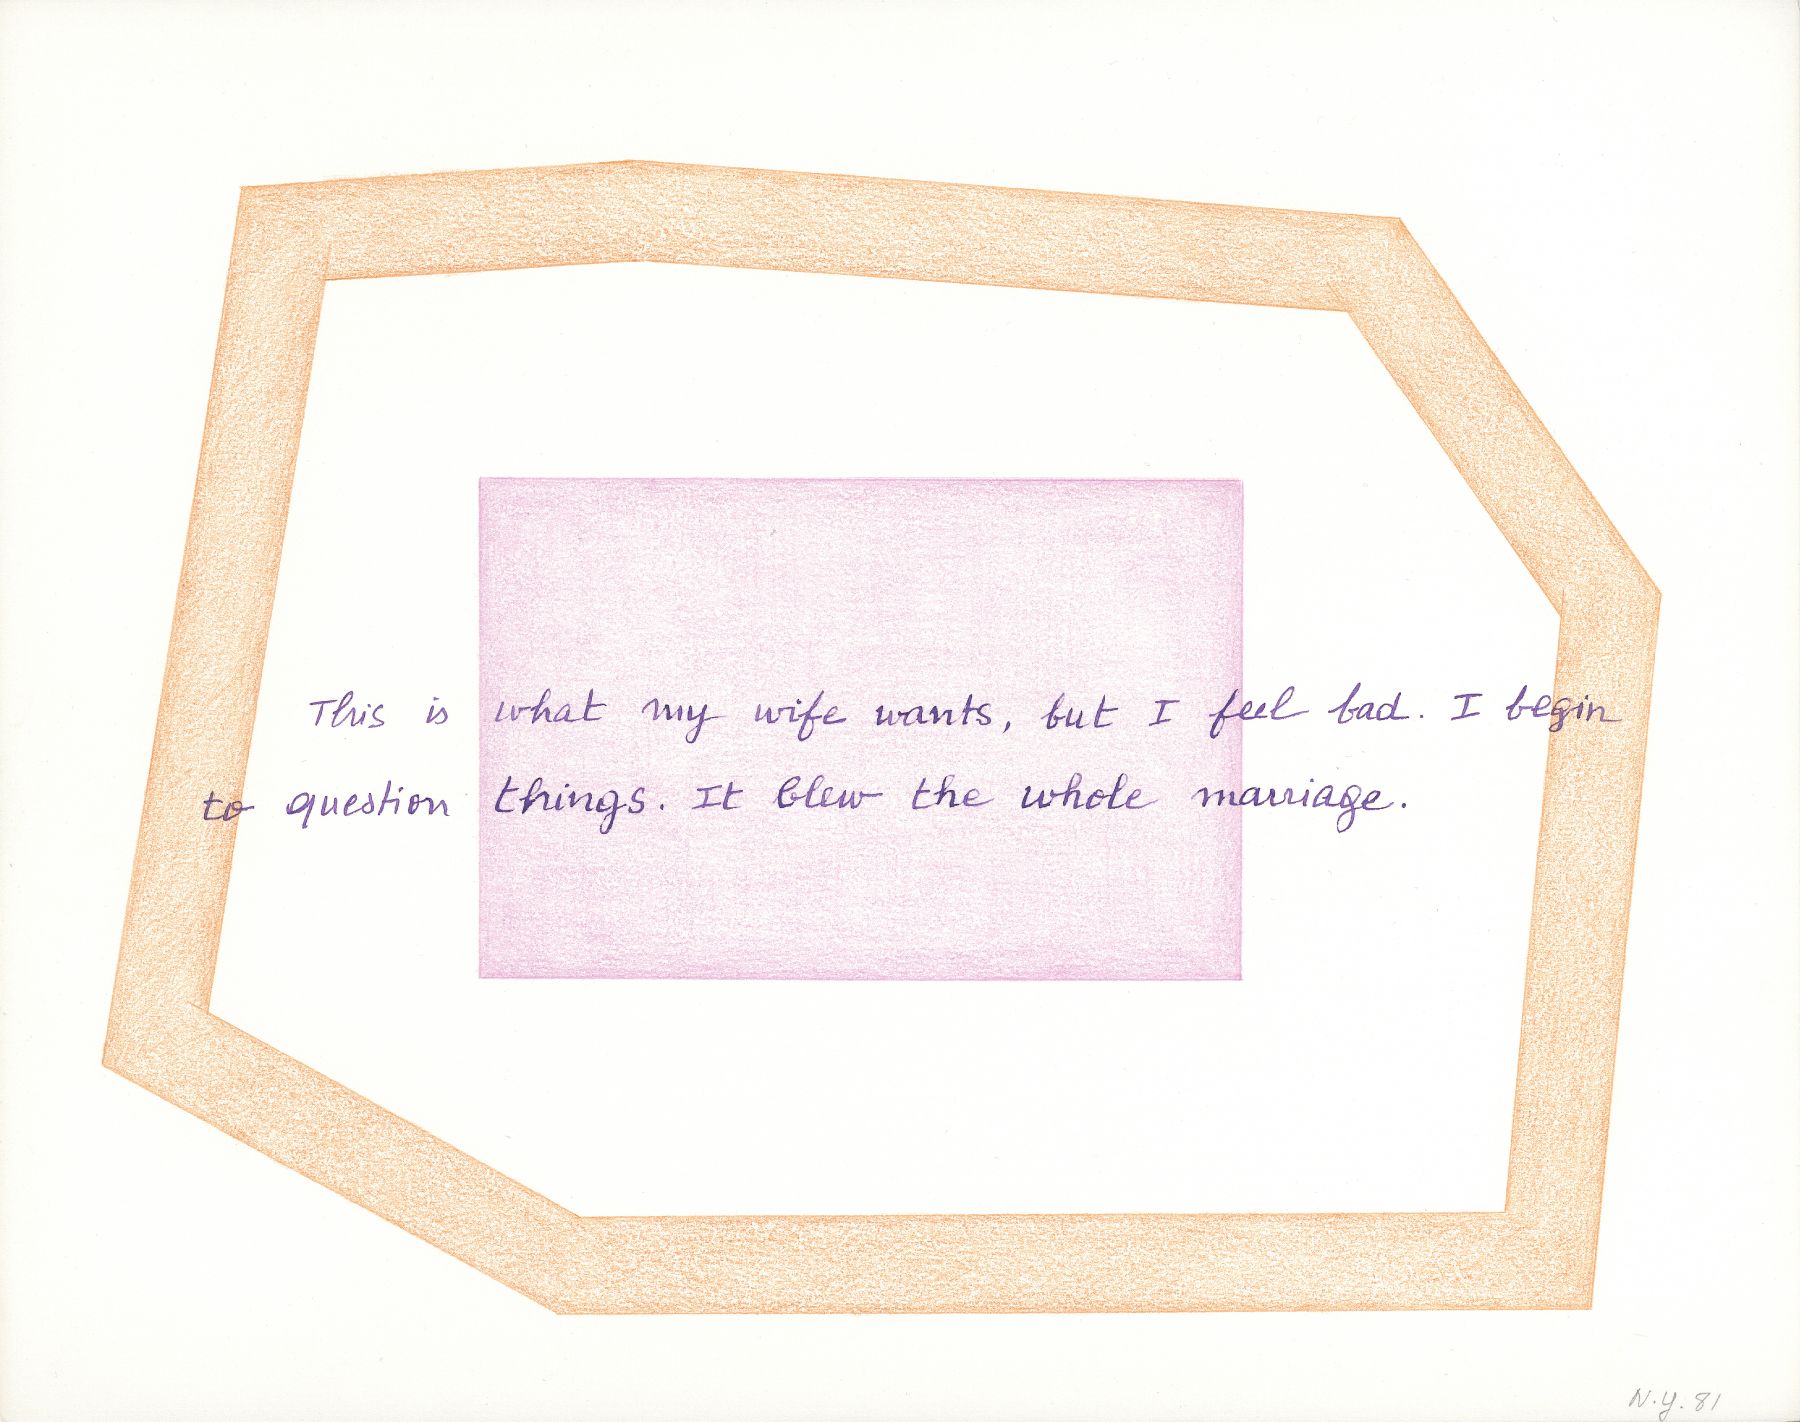 This is what my wife wants, but I feel bad. I begin
to question things. It blew the whole marriage.
N.Y. 81